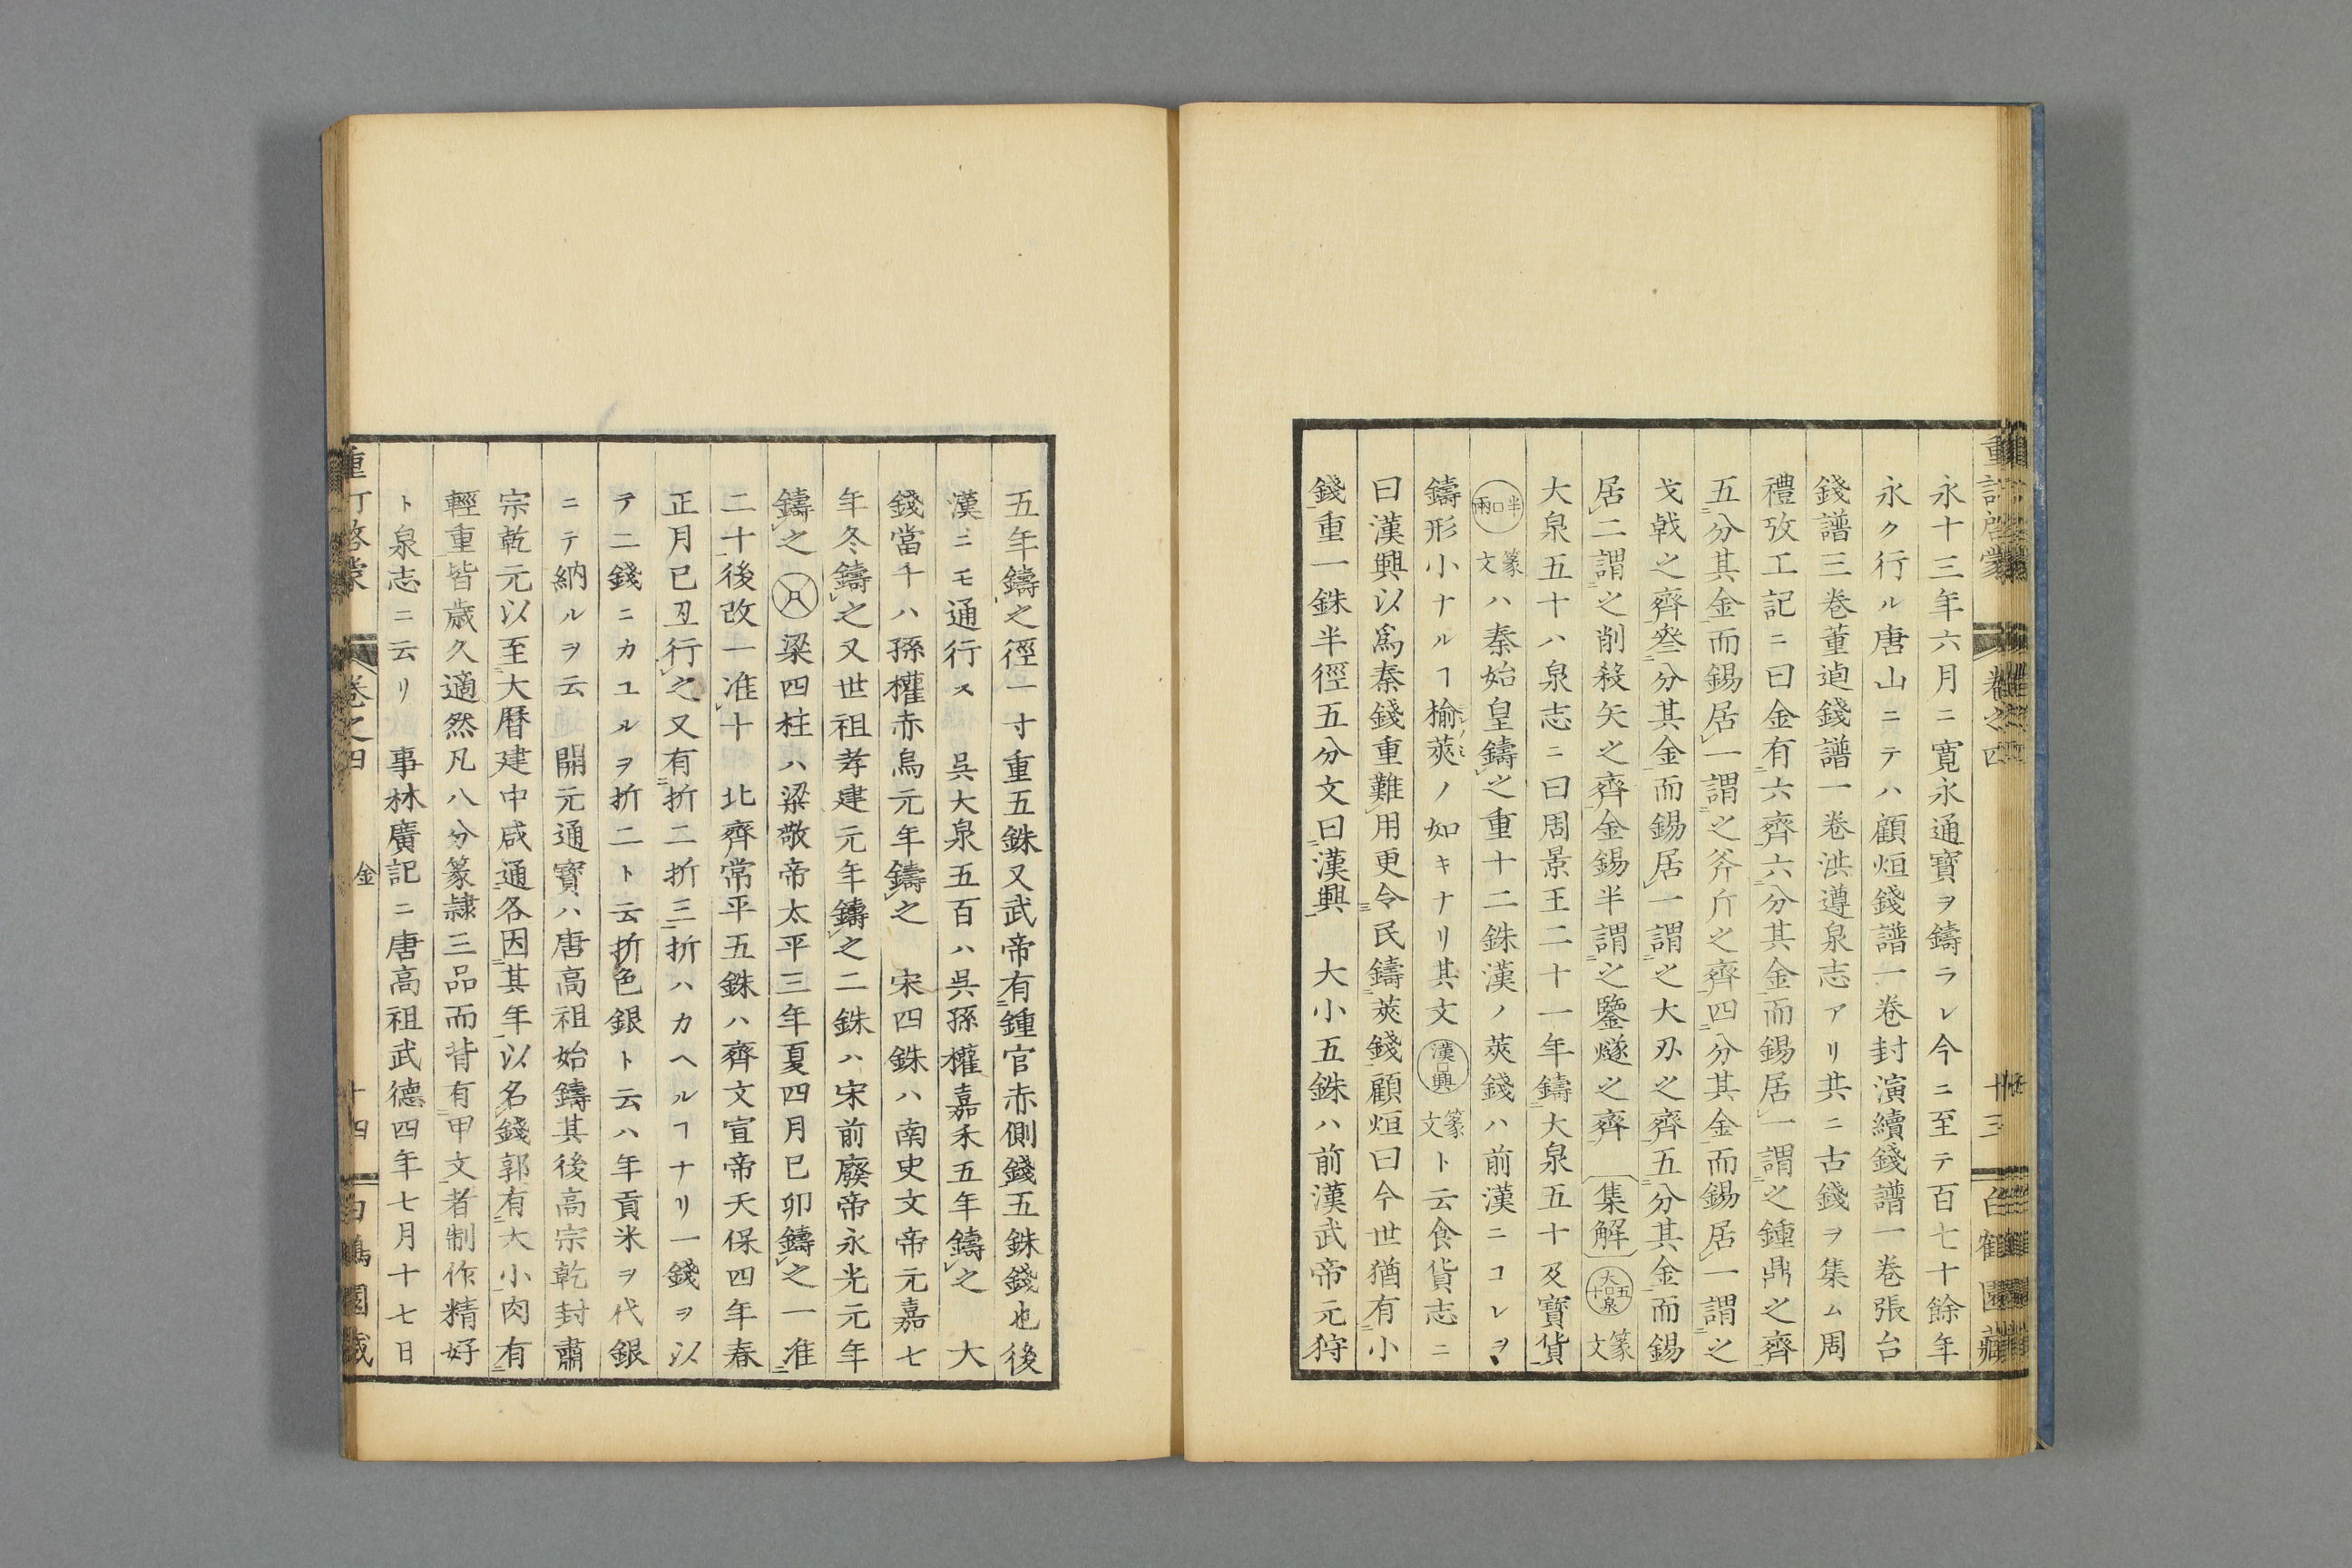 永十三年六月ニ寛永通寳ヲ鑄ラレ今ニ至テ百七十餘年
永ク行ル唐山ニテハ顧烜錢譜一巻封演續錢譜一巻張台
錢譜三巻董逌錢譜一巻洪遵泉志アリ共ニ古錢ヲ集ム周
禮攷工記ニ曰金有六齊六分其金而錫居一謂之鍾鼎之齊
五分其金而錫居一謂之斧斤之齊四分其金而錫居一謂之
戈戟之齊叄分其金而錫居一謂之大刃之齊五分其金而錫
居二謂之削殺矢之齊金錫半謂之鑒燧之齊 集解 大泉五十 篆文
大泉五十ハ泉志ニ曰周景王二十一年鑄大泉五十及寳貨
半兩 篆文ハ秦始皇鑄之重十二銖漢ノ莢錢ハ前漢ニコレヲ
鑄形小ナルヿ榆莢ノ如キナリ其文 漢興 篆文ト云食貨志ニ
曰漢興以爲秦錢重難用更令民鑄莢錢顧烜曰今世猶有小
錢重一銖半徑五分文曰漢興 大小五銖ハ前漢武帝元狩
五年鑄之徑一寸重五銖又武帝有鍾官赤側錢五銖錢也後
漢ニモ通行ス 吳大泉五百ハ吳孫權嘉禾五年鑄之 大
錢當千ハ孫權赤烏元年鑄之 宋四銖ハ南史文帝元嘉七
年冬鑄之又世祖孝建元年鑄之二銖ハ宋前廢帝永光元年
鑄之 梁四柱ハ梁敬帝太平三年夏四月已卯鑄之一准
二十後改一准十 北齊常平五銖ハ齊文宣帝天保四年春
正月已丑行之又有折二折三折ハカヘルヿナリ一錢ヲ以
テ二錢ニカユルヲ折二ト云折色銀ト云ハ年貢米ヲ代銀
ニテ納ルヲ云 開元通寳ハ唐高祖始鑄其後高宗乾封肅
宗乾元以至大曆建中咸通各因其年以名錢郭有大小肉有
輕重皆歳久適然凡八分篆隷三品而背有甲文者制作精好
ト泉志ニ云リ 事林廣記ニ唐高祖武德四年七月十七日
巻之四 金 十四